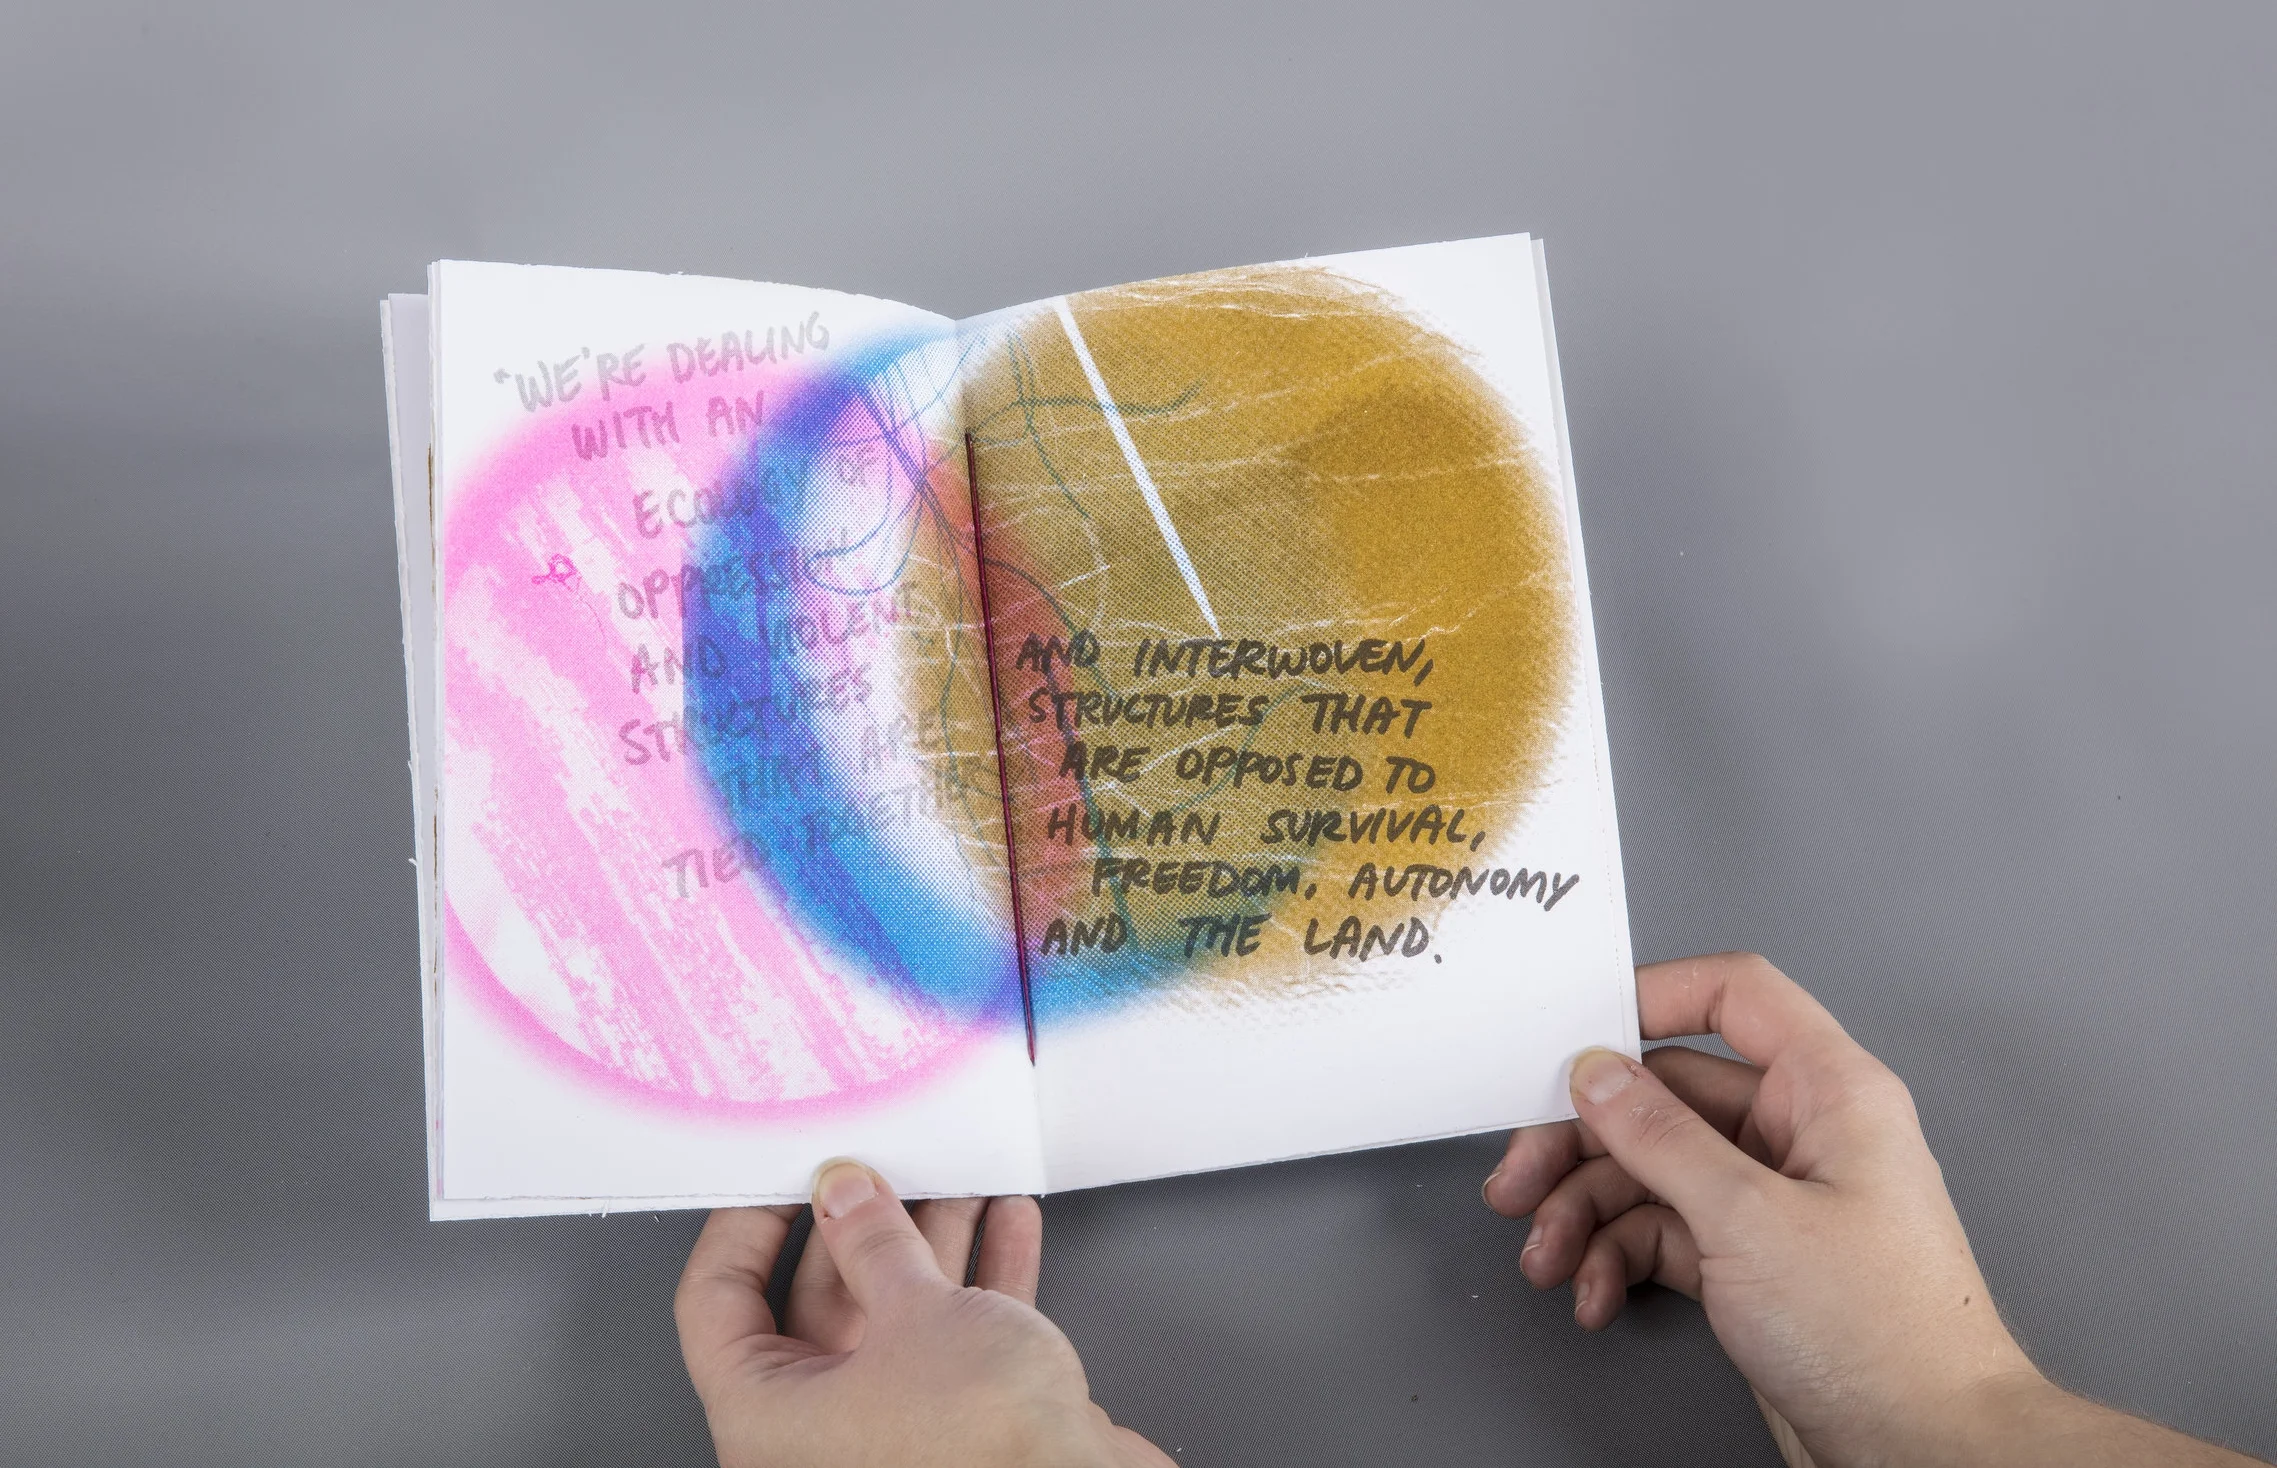 "WE'RE DEALING
WITH AN
ECOLOGY OF
OPPRESSION
AND VIOLENT
STRUCTURES
THAT ARE
TIED TOGETHER
AND INTERWOVEN,
STRUCTURES THAT
ARE OPPOSED TO
HUMAN SURVIVAL,
FREEDOM, AUTONOMY
AND THE LAND.